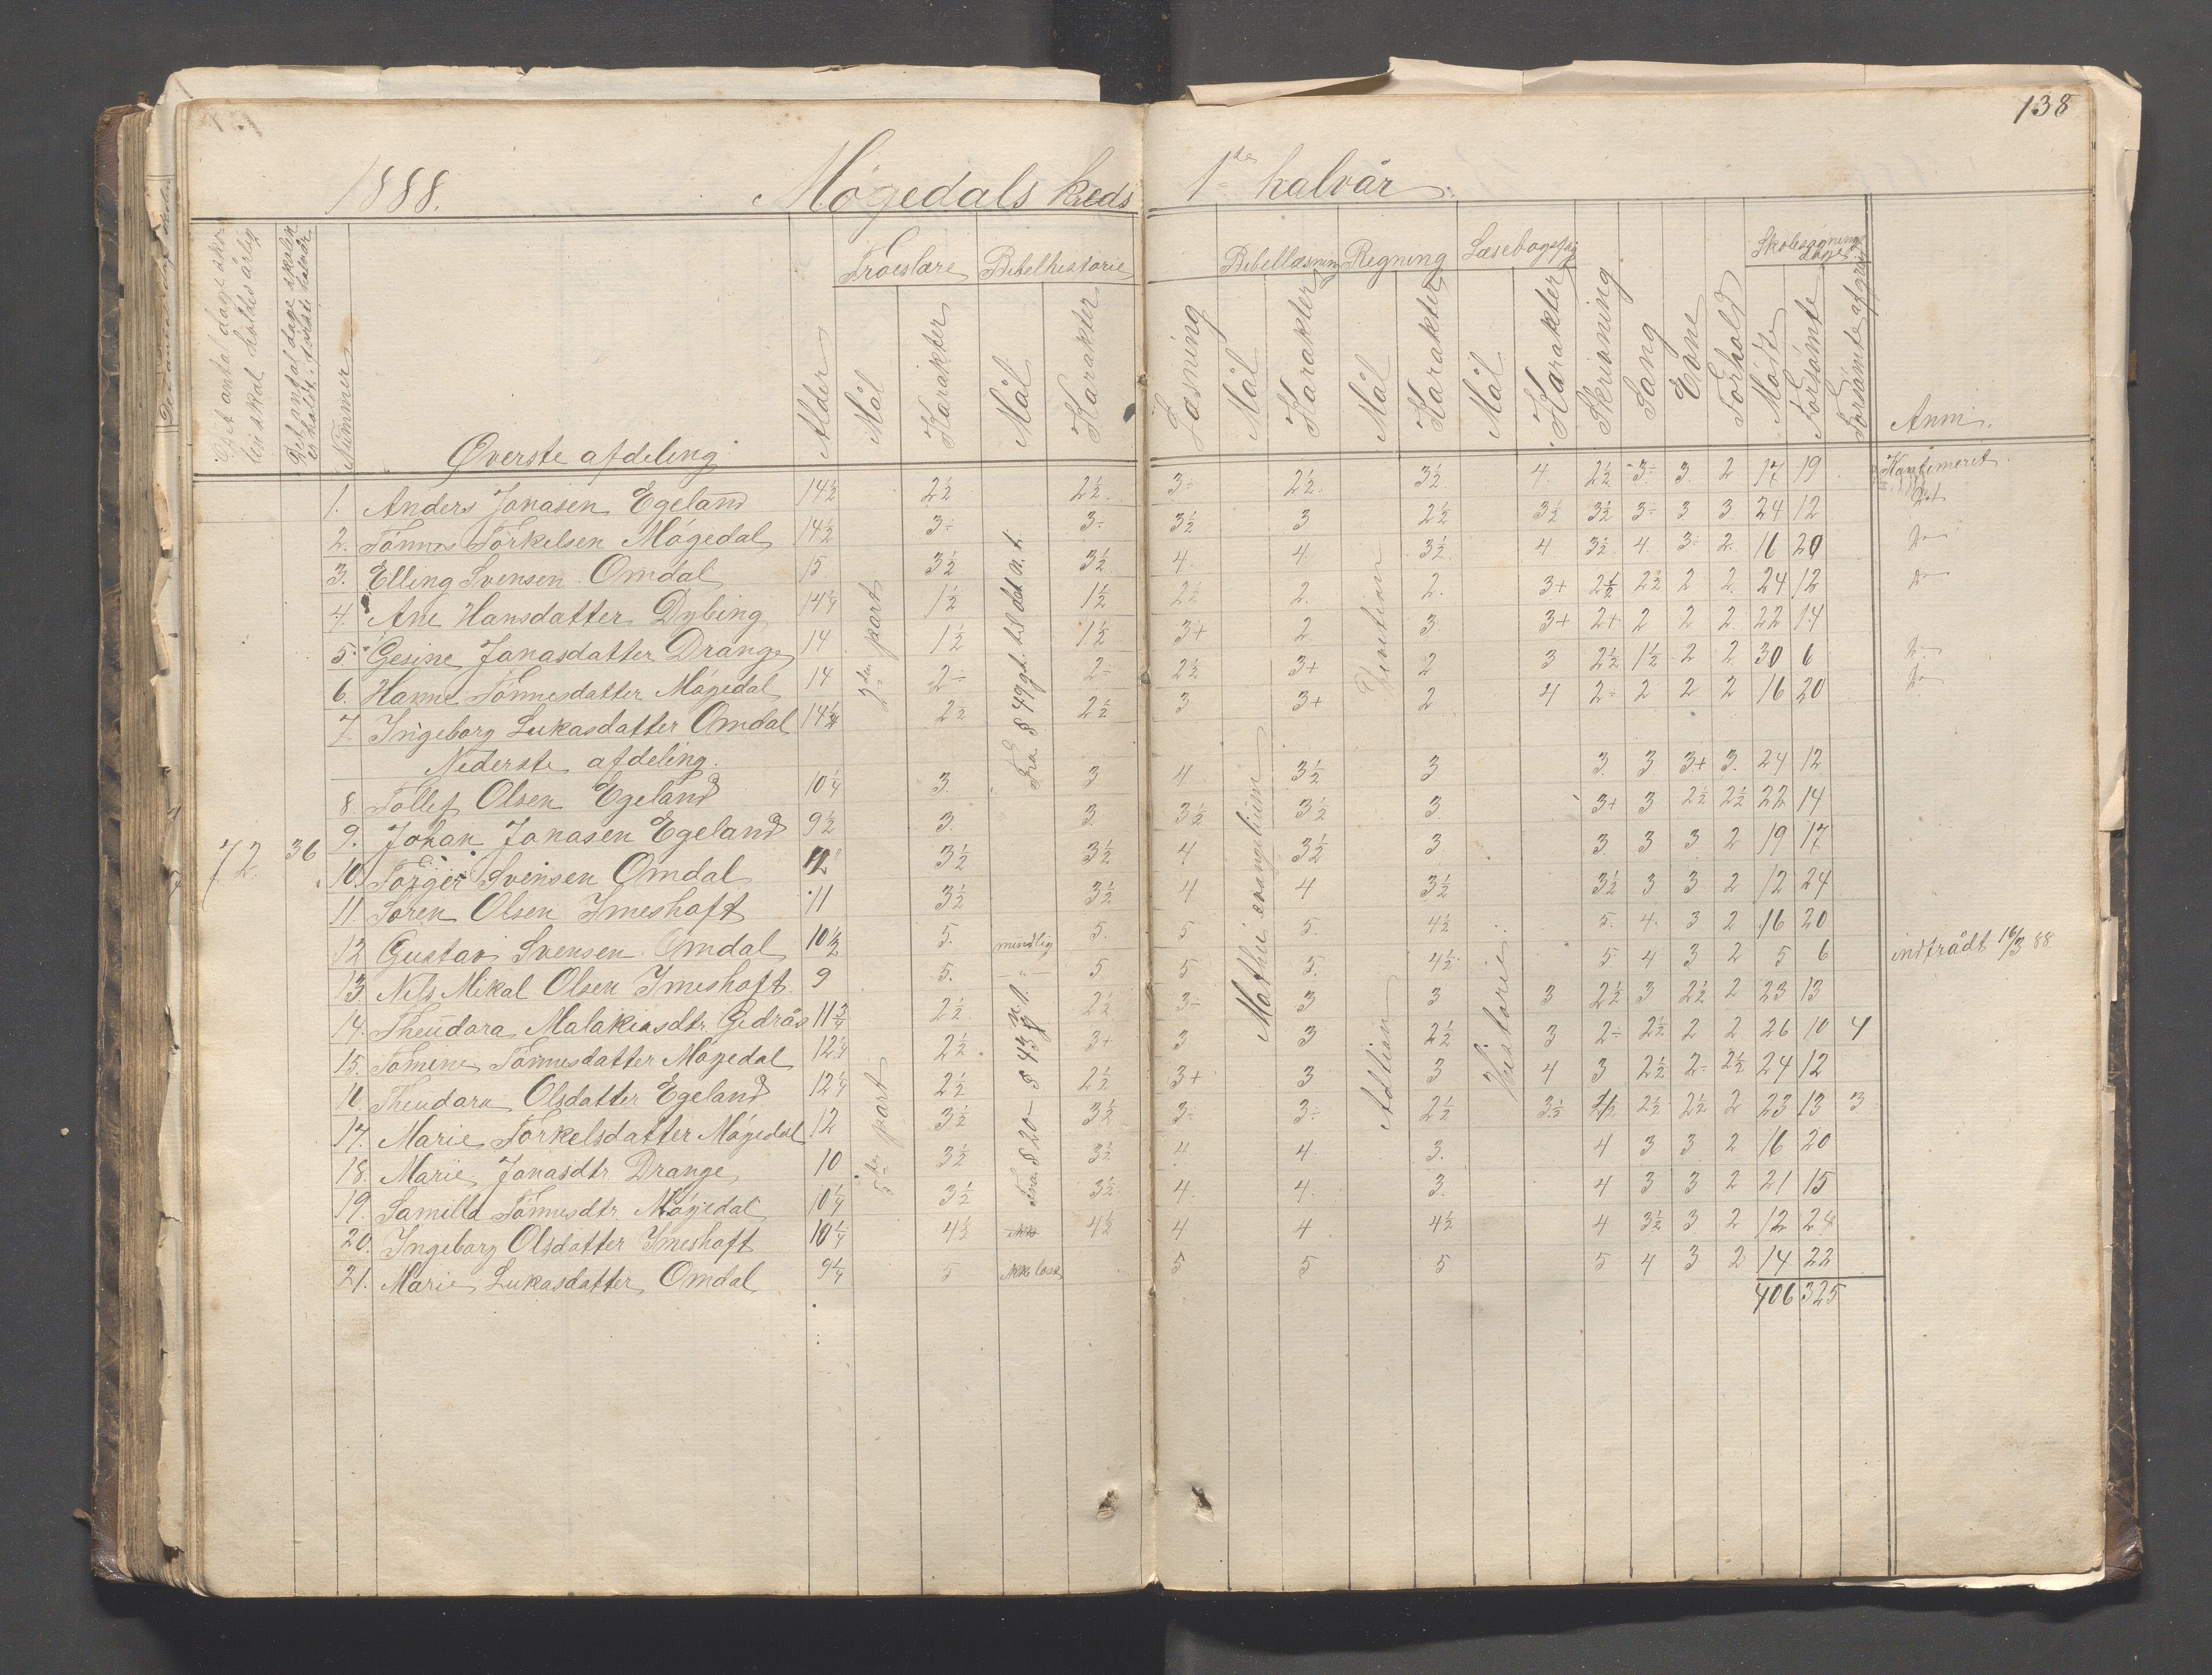 138
1888. Møgedals kreds 1ste halvår.
Det antal dage skolen skal holdes årlig
Det antal dage skolen er holdt i første halvår
Nummer
Øverste afdeling
Alder
Troeslære Mål Karakter
Bibelhistorie Mål Karakter
Læsning
Bibellæsning Mål Karakter
Regning Mål Karakter
Læsebogsfag Mål Karakter
Skrivning
Sang
Evne
Forhold
Skolesøgningsdage Mødte Forsømte
Forsømte af
Anm.
1. Anders Jonasen Egeland 14½ 2½ 2½ 3÷ 2½ 3½ 4 2½ 3÷ 3 2 17 19 Konfirmeret
2. Tønnes Torkelsen Møgedal 14½ 3÷ 3÷ 3½ 3 2½ 3½ 3½ 3÷ 3 3 24 12 Dot
3. Elling Svensen Omdal 15 3½ 3½ 4 4 3½ 4 3½ 4 3÷ 2 16 20 Do
4. Ane Hansdatter Dybing 14¼ 1½ 1½ 2½ 2 2 3+ 2½ 2½ 2 2 24 12 Do
5. Gesine Jonasdatter Drange 14 1½ 1½ 3+ 2 3 3+ 2+ 2 2 2 22 14
6. Hanne Tønnesdatter Møgedal 14 2÷ 2÷ 2½ 3+ 2 3 2½ 1½ 2 2 30 6 Do
7. Ingeborg Lukasdatter Omdal 14¼ 2½ 2½ 3 3+ 2 4 2÷ 2 2 2 16 20 Do
2den part
Fra § 49 gt. til det n. t.
Nederste afdeling.
8. Tollef Olsen Egeland 10¼ 3 3 4 3½ 3 3 3 3+ 3 24 12
9. Johan Jonasen Egeland 9½ 3 3 3½ 3½ 3 3+ 3 2½ 2½ 22 14
72 36
10. Torger Svensen Omdal 12 3½ 3½ 4 3½ 3 3 3 3 2 19 17
11. Søren Olsen Imeshaft 11 3½ 3½ 4 4 3½ 3½ 3 3 2 12 24
12 Gustav Svensen Omdal 10½ 5 mundlig 5 5 5 4½ 5 4 3 2 16 20
13 Nils Mikal Olsen Imeshaft 9 5 — " — 5 5 5 4½ 5 4 3 2 5 6 indtrådt 16/3 88
14. Theodora Malakiasdtr. Gedrås 11¾ 2½ 2½ 3÷ 3 3 3 2½ 3 2½ 2 23 13
15. Tomine Tønnesdatter Møgedal 12¼ 2½ 3+ 3 3 2½ 3 2÷ 2½ 2 2 26 10 4
16 Theodora Olsdatter Egeland 12¼ 2½ 2½ 3+ 3 3 4 3 2½ 2÷ 2½ 24 12
17. Marie Torkelsdatter Møgedal 12 3½ 3½ 3÷ 3÷ 2½ 3½ 2½ 2½ 2½ 2 23 13 3
18. Marie Jonasdtr. Drange 10 3½ 3½ 4 4 3 4 3 3 2 16 20
19. Samilla Tønnesdtr. Møgedal 10¼ 3½ 3½ 4 4 3 4 3 3 2 21 15
20. Ingeborg Olsdatter Imeshaft 10¼ 4½ 4½ 4 4 4½ 4 3½ 3 2 12 24
21. Marie Lukasdatter Omdal 9¼ 5 ikke læst 5 5 5 5 4 3 2 14 22
406 325
5te part
Fra § 20 — § 43 n. t.
Mathæi evangelium
Division
Addition
Historie